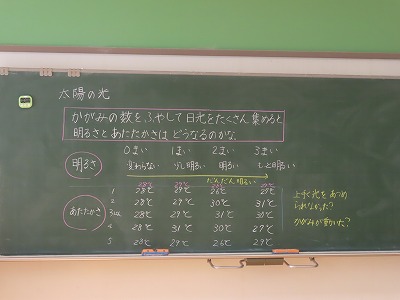 太陽の光
かがみの数をふやして日光をたくさん集めると
明るさとあたたかさは どうなるのかな。
0まい 1まい 2まい 3まい
明るさ 変わらない 少し明るい 明るい もっと明るい
だんだん明るい
あたたかさ
1 28℃ 29℃ 26℃ 27℃
2 28℃ 29℃ 30℃ 31℃
28℃ 29℃ 31℃ 30℃
4 28℃ 31℃ 30℃ 27℃
5 28℃ 29℃ 26℃ 29℃
上手く光をあつめ
られなかった?
かがみが動いた?